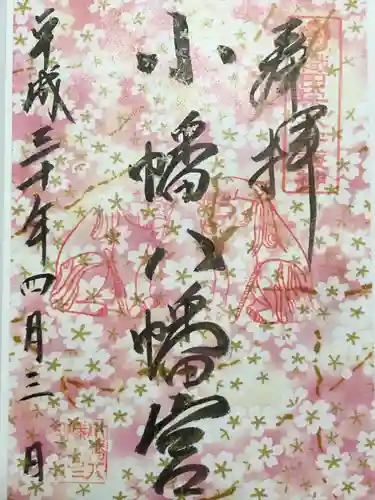 奉拝
小幡八幡宮
平成三十年四月三日